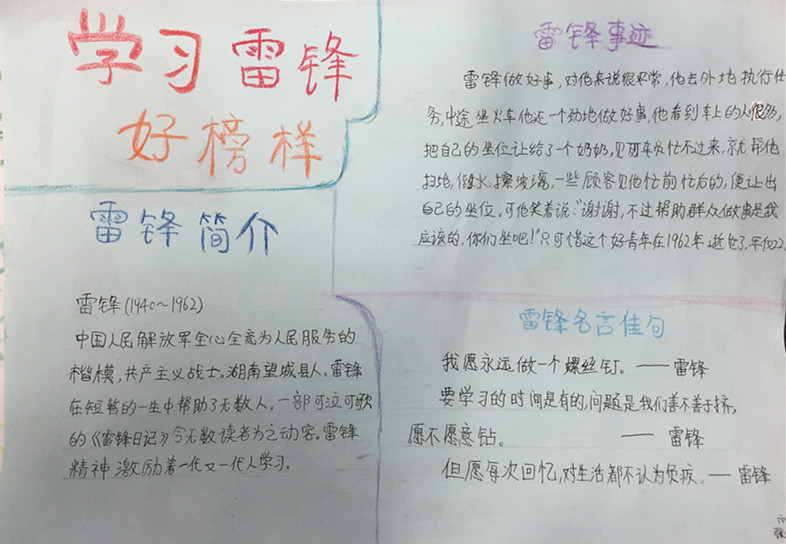 学习雷锋
好榜样
雷锋简介
雷锋(1940~1962)
中国人民解放军全心全意为人民服务的
楷模,共产主义战士。湖南望城县人。雷锋
在短暂的一生中帮助了无数人。一部可泣可歌
的《雷锋日记》令无数读者为之动容。雷锋
精神激励着一代又一代人学习。
雷锋事迹
雷锋做好事,对他来说很平常,他去外地执行任
务,中途坐火车他还一个劲地做好事,他看到车上的人很多,
把自己的坐位让给了一个奶奶,见列车员忙不过来,就帮他
扫地,倒水,擦玻璃,一些顾客见他忙前忙后的,便让出
自己的坐位。可他笑着说:"谢谢,不过帮助群众做事是我
应该的,你们坐吧!"只可惜这个好青年在1962年逝世了,年仅22
雷锋名言佳句
我愿永远做一个螺丝钉。——雷锋
要学习的时间是有的,问题是我们善不善于挤,
愿不愿意钻。 ——雷锋
但愿每次回忆,对生活都不认为负疚。——雷锋